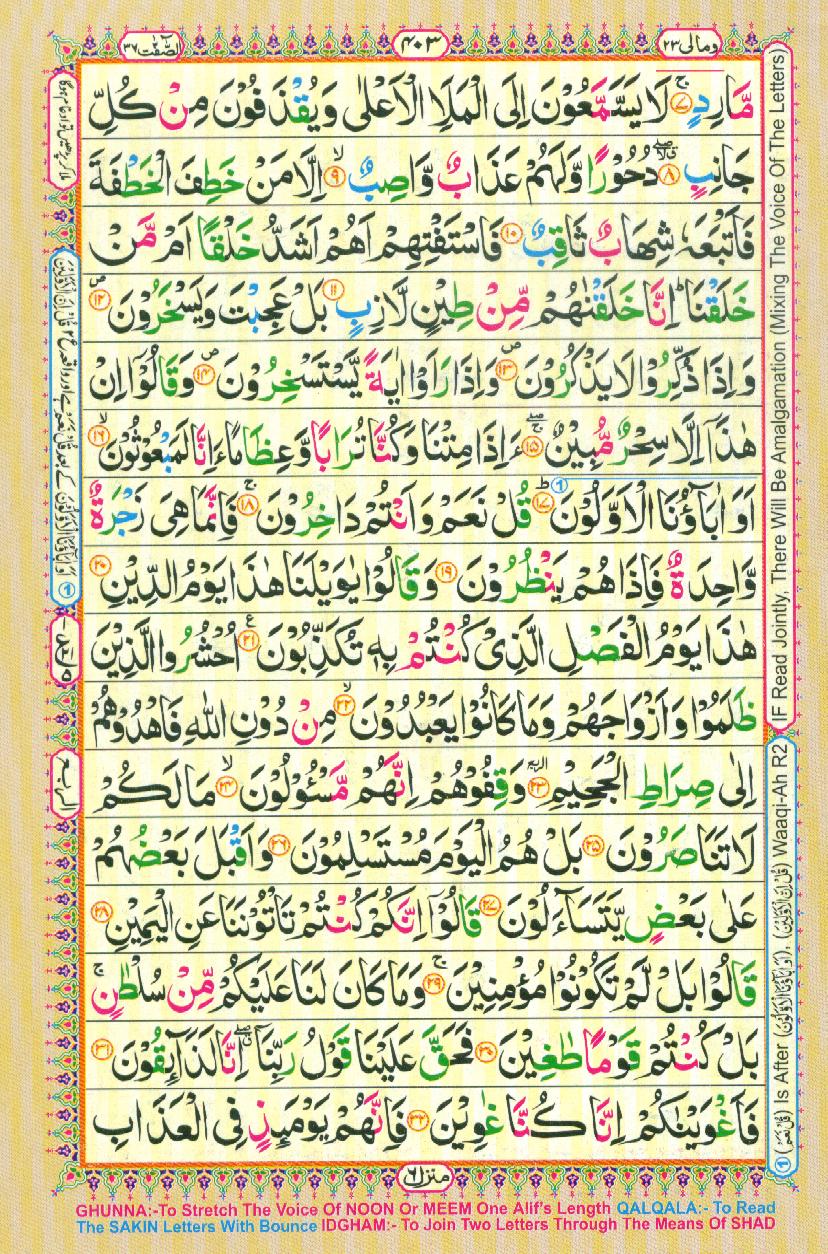 الصّٰفّٰت ٣٧
٤٠٣
ومالی ٢٣
مَّارِدٍ ۚ‏﴿۷﴾ لَا یَسَّمَّعُوْنَ اِلَی الْمَلَاِ الْاَعْلٰی وَیُقْذَفُوْنَ مِنْ كُلِّ
جَانِبٍ ﴿۸﴾ دُحُوْرًا وَّلَهُمْ عَذَابٌ وَّاصِبٌ ۙ﴿۹﴾ اِلَّا مَنْ خَطِفَ الْخَطْفَةَ
فَاَتْبَعَهٗ شِهَابٌ ثَاقِبٌ ﴿۱۰﴾ فَاسْتَفْتِهِمْ اَهُمْ اَشَدُّ خَلْقًا اَمْ مَّنْ
خَلَقْنَا ؕ اِنَّا خَلَقْنٰهُمْ مِّنْ طِیْنٍ لَّازِبٍ ﴿۱۱﴾ بَلْ عَجِبْتَ وَیَسْخَرُوْنَ ۪﴿۱۲﴾
وَاِذَا ذُكِّرُوْا لَا یَذْكُرُوْنَ ۪﴿۱۳﴾ وَاِذَا رَاَوْا اٰیَةً یَّسْتَسْخِرُوْنَ ۪﴿۱۴﴾ وَقَالُوْۤا اِنْ
هٰذَاۤ اِلَّا سِحْرٌ مُّبِیْنٌ ﴿۱۵﴾ ءَاِذَا مِتْنَا وَكُنَّا تُرَابًا وَّعِظَامًا ءَاِنَّا لَمَبْعُوْثُوْنَ ۙ﴿۱۶﴾
اَوَ اٰبَآؤُنَا الْاَوَّلُوْنَ ؕ﴿۱۷﴾ قُلْ نَعَمْ وَاَنْتُمْ دَاخِرُوْنَ ۚ﴿۱۸﴾ فَاِنَّمَا هِیَ زَجْرَةٌ
وَّاحِدَةٌ فَاِذَا هُمْ یَنْظُرُوْنَ ﴿۱۹﴾ وَقَالُوْا یٰوَیْلَنَا هٰذَا یَوْمُ الدِّیْنِ ﴿۲۰﴾
هٰذَا یَوْمُ الْفَصْلِ الَّذِیْ كُنْتُمْ بِهٖ تُكَذِّبُوْنَ ﴿۲۱﴾ اُحْشُرُوا الَّذِیْنَ
ظَلَمُوْا وَاَزْوَاجَهُمْ وَمَا كَانُوْا یَعْبُدُوْنَ ۙ﴿۲۲﴾ مِنْ دُوْنِ اللّٰهِ فَاهْدُوْهُمْ
اِلٰی صِرَاطِ الْجَحِیْمِ ﴿۲۳﴾ وَقِفُوْهُمْ اِنَّهُمْ مَّسْـُٔوْلُوْنَ ۙ﴿۲۴﴾ مَا لَكُمْ
لَا تَنَاصَرُوْنَ ﴿۲۵﴾ بَلْ هُمُ الْیَوْمَ مُسْتَسْلِمُوْنَ ﴿۲۶﴾ وَاَقْبَلَ بَعْضُهُمْ
عَلٰی بَعْضٍ یَّتَسَآءَلُوْنَ ﴿۲۷﴾ قَالُوْۤا اِنَّكُمْ كُنْتُمْ تَاْتُوْنَنَا عَنِ الْیَمِیْنِ ﴿۲۸﴾
قَالُوْا بَلْ لَّمْ تَكُوْنُوْا مُؤْمِنِیْنَ ۚ﴿۲۹﴾ وَمَا كَانَ لَنَا عَلَیْكُمْ مِّنْ سُلْطٰنٍ ۚ
بَلْ كُنْتُمْ قَوْمًا طٰغِیْنَ ﴿۳۰﴾ فَحَقَّ عَلَیْنَا قَوْلُ رَبِّنَاۤ اِنَّا لَذَآئِقُوْنَ ﴿۳۱﴾
فَاَغْوَیْنٰكُمْ اِنَّا كُنَّا غٰوِیْنَ ﴿۳۲﴾ فَاِنَّهُمْ یَوْمَئِذٍ فِی الْعَذَابِ
منزل ٦
IF Read Jointly, There Will Be Amalgamation (Mixing The Voice Of The Letters)
① (قُلْ نَعَمْ) Is After (اَوَاٰبَآؤُنَا الْاَوَّلُوْنَ), (قُلْ اِنَّ الْاَوَّلِیْنَ) Waaqi-Ah R2
GHUNNA:-To Stretch The Voice Of NOON Or MEEM One Alif's Length QALQALA:- To Read
The SAKIN Letters With Bounce IDGHAM:- To Join Two Letters Through The Means Of SHAD